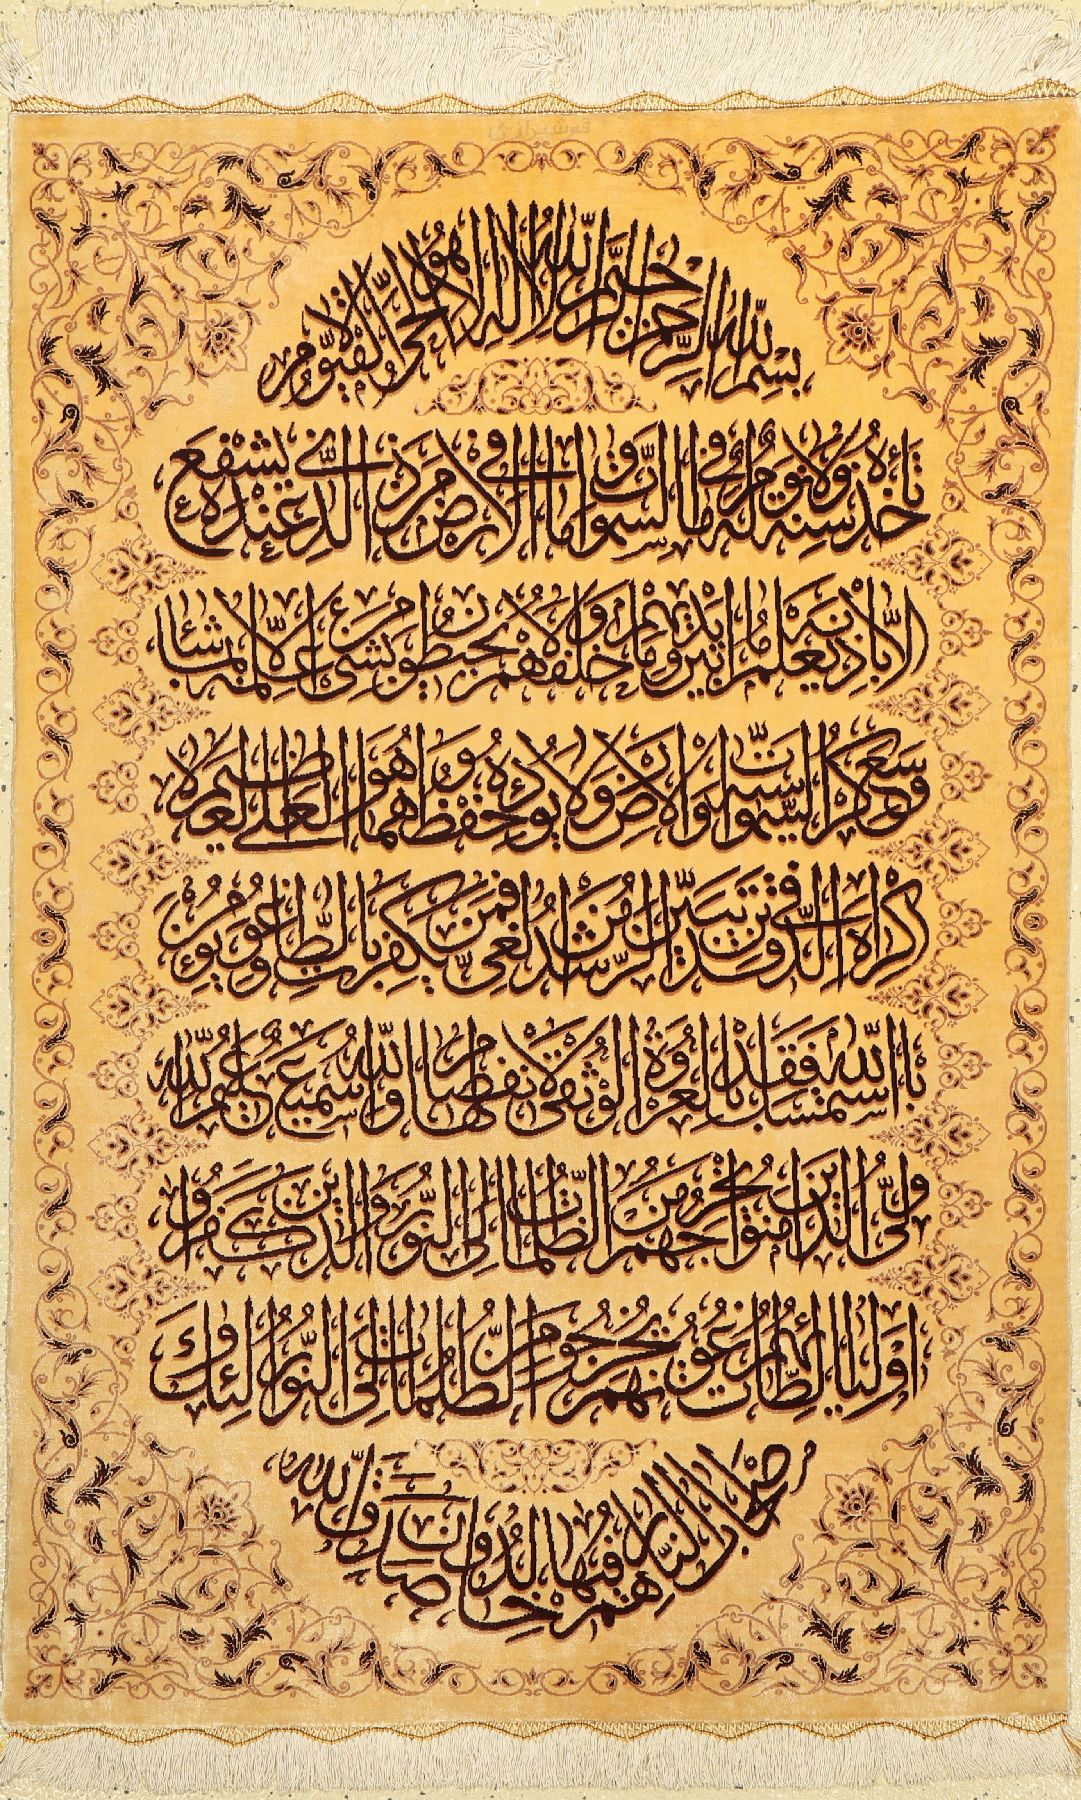 بسم الله الرحمن الرحیم الله لا اله الا هو الحی القیوم لا
تاخذه سنة ولا نوم له ما فی السموات وما فی الارض من ذا الذی یشفع عنده
الا باذنه یعلم ما بین ایدیهم وما خلفهم ولا یحیطون بشیء من علمه الا بما شاء
وسع کرسیه السموات والارض ولا یوده حفظهما وهو العلی العظیم لا
اکراه فی الدین قد تبین الرشد من الغی فمن یکفر بالطاغوت ویؤمن
بالله فقد استمسک بالعروة الوثقی لا انفصام لها والله سمیع علیم الله
ولی الذین امنوا یخرجهم من الظلمات الی النور والذین کفروا
اولیائهم الطاغوت یخرجونهم من النور الی الظلمات اولئک
اصحاب النار هم فیها خالدون صدق الله